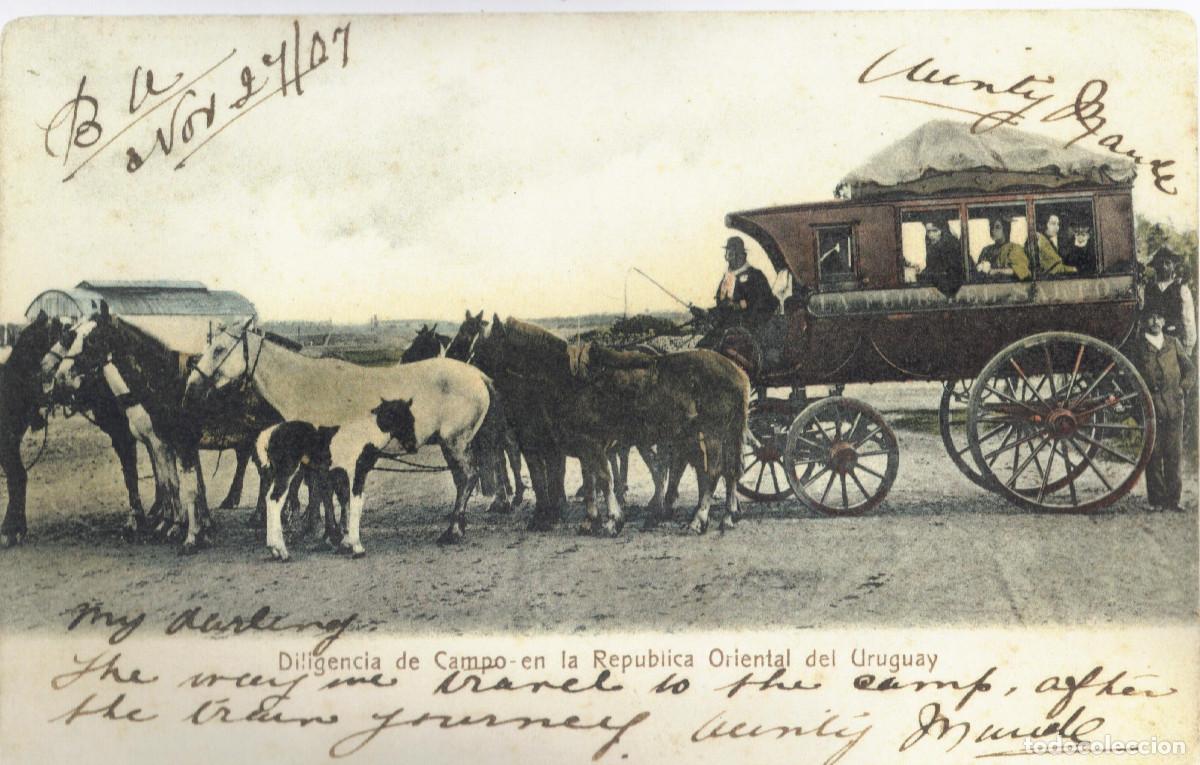 B A
Nov 27/07
Aunty Maude
My darling.
Diligencia de Campo - en la Republica Oriental del Uruguay
The way we travel to the camp, after
the train journey. Aunty Maude
todocoleccion